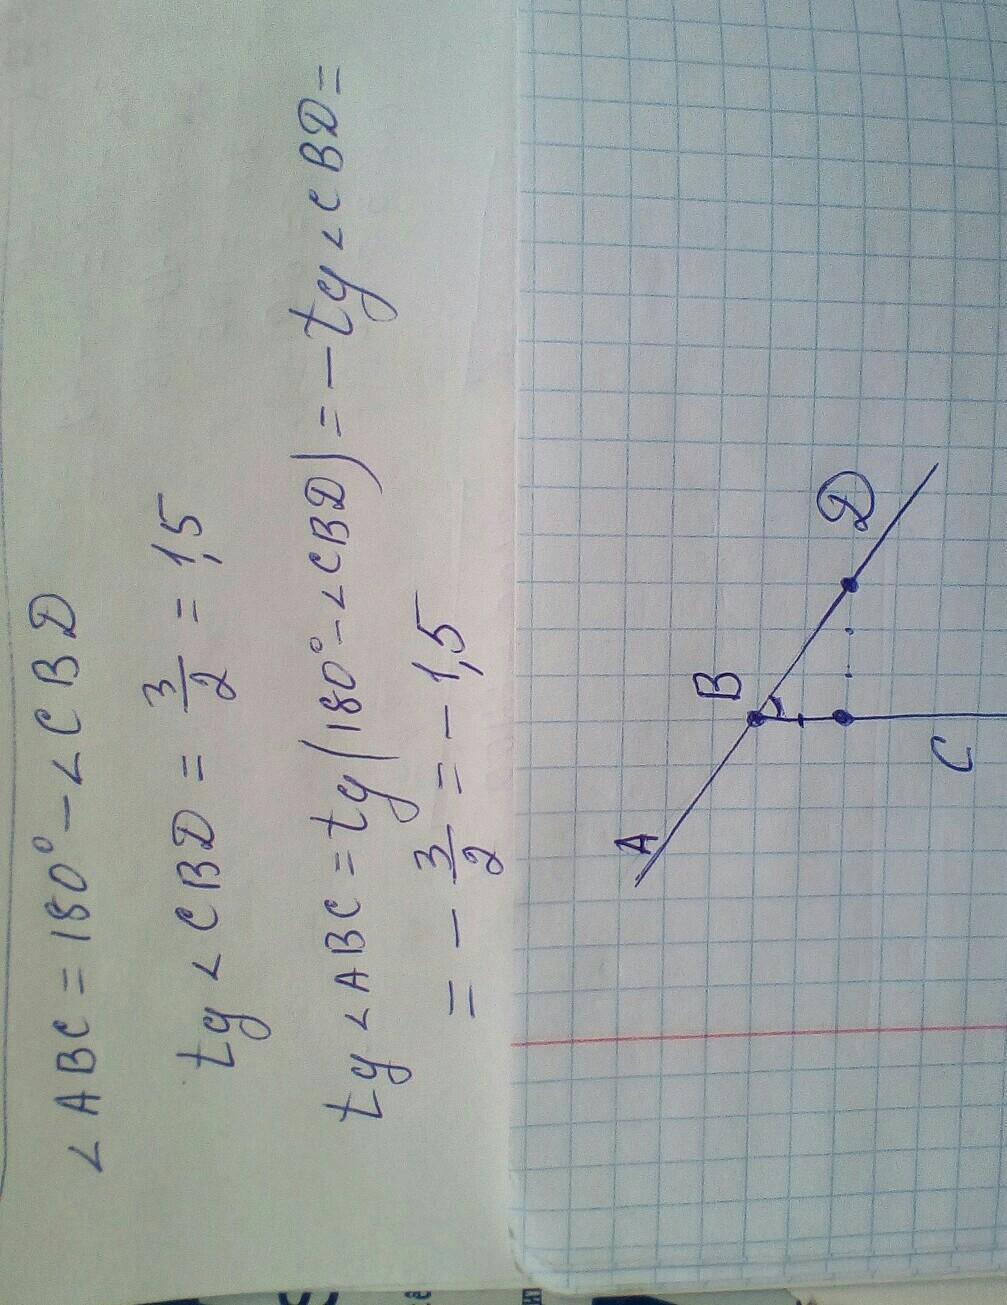 ∠ABC = 180° - ∠CBD
tg ∠CBD = 3/2 = 1,5
tg ∠ABC = tg(180° - ∠CBD) = - tg ∠CBD =
= - 3/2 = - 1,5
A
B
D
C